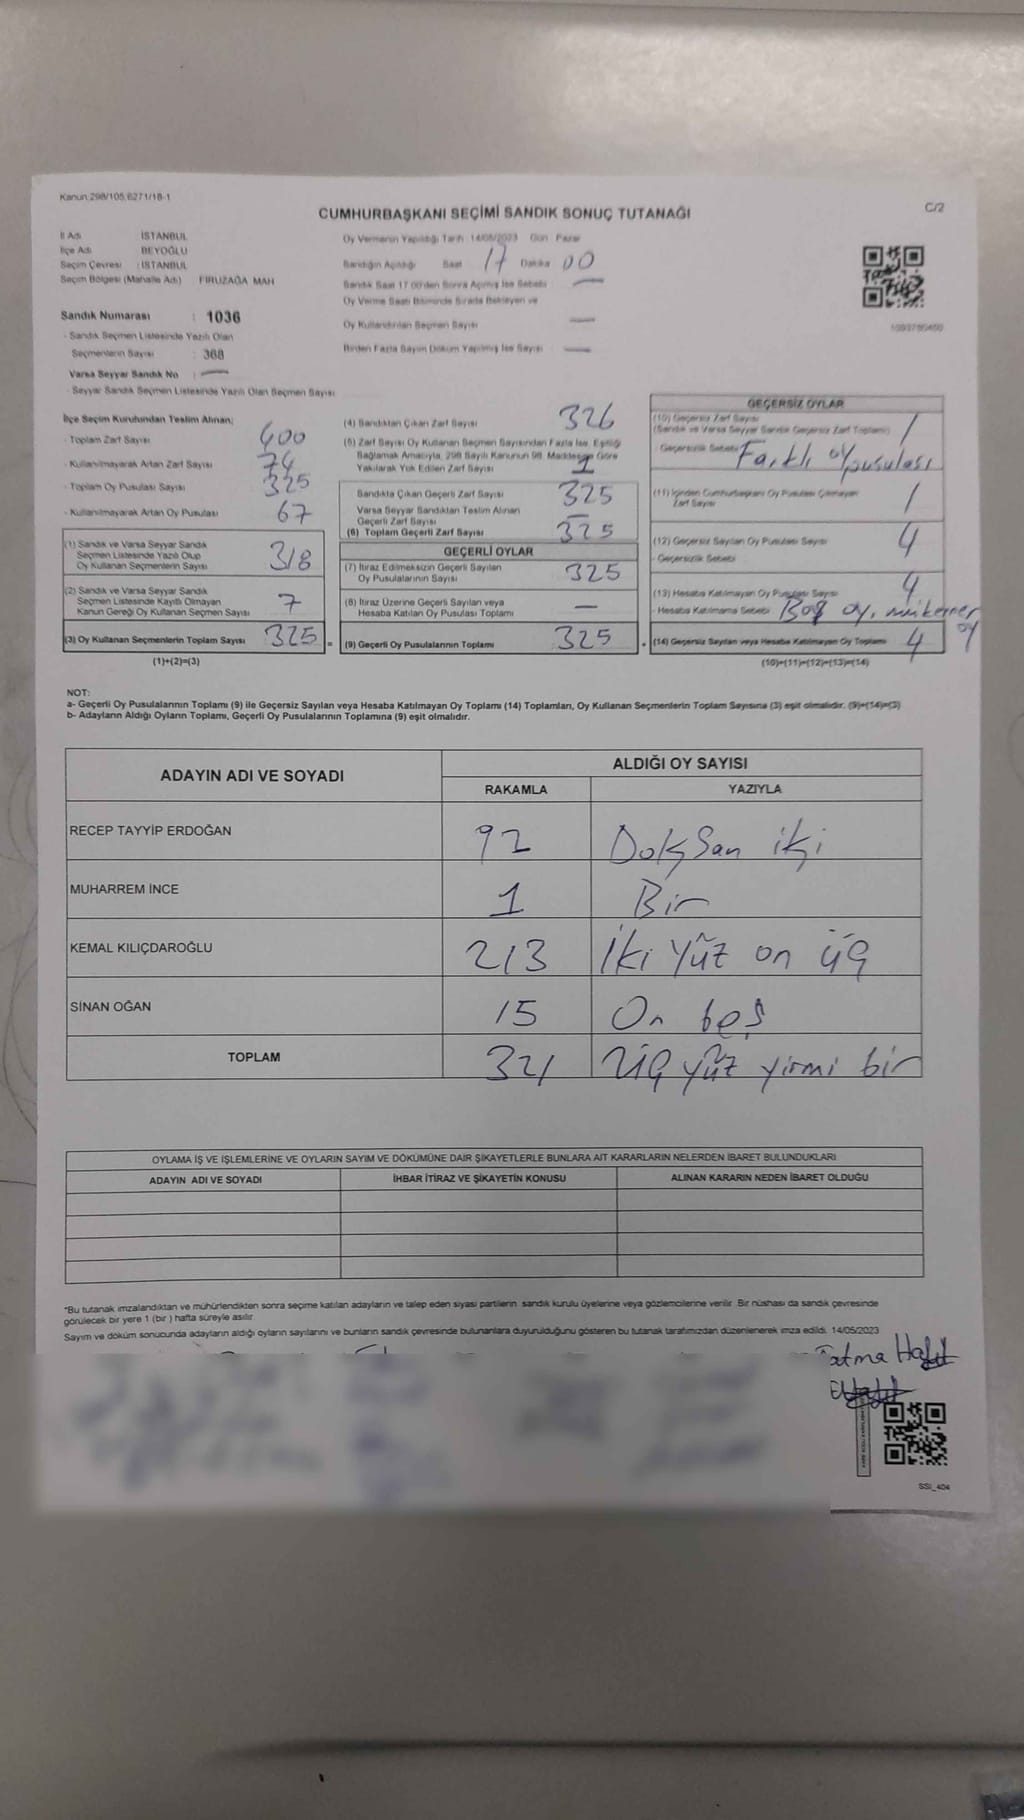 Kanun:298/105,6271/18-1
CUMHURBAŞKANI SEÇİMİ SANDIK SONUÇ TUTANAĞI
C/2
İl Adı İSTANBUL
İlçe Adı BEYOĞLU
Seçim Çevresi : İSTANBUL
Seçim Bölgesi (Mahalle Adı) FİRUZAĞA MAH
Sandık Numarası : 1036
- Sandık Seçmen Listesinde Yazılı Olan
Seçmenlerin Sayısı : 368
Varsa Seyyar Sandık No : —
- Seyyar Sandık Seçmen Listesinde Yazılı Olan Seçmen Sayısı
Oy Vermenin Yapıldığı Tarih :14/05/2023 Gün : Pazar
Sandığın Açıldığı Saat 17 Dakika 00
Sandık Saat 17.00'den Sonra Açılmış İse Sebebi —
Oy Verme Saati Bitiminde Sırada Bekleyen ve
Oy Kullandırılan Seçmen Sayısı —
Birden Fazla Sayım Döküm Yapılmış İse Sayısı —
İlçe Seçim Kurulundan Teslim Alınan;
- Toplam Zarf Sayısı 400
- Kullanılmayarak Artan Zarf Sayısı 74
- Toplam Oy Pusulası Sayısı 325
- Kullanılmayarak Artan Oy Pusulası 67
(1) Sandık ve Varsa Seyyar Sandık
Seçmen Listesinde Yazılı Olup
Oy Kullanan Seçmenlerin Sayısı 318
(2) Sandık ve Varsa Seyyar Sandık
Seçmen Listesinde Kayıtlı Olmayan
Kanun Gereği Oy Kullanan Seçmen Sayısı 7
(3) Oy Kullanan Seçmenlerin Toplam Sayısı 325 =
(1)+(2)=(3)
(4) Sandıktan Çıkan Zarf Sayısı 326
(5) Zarf Sayısı Oy Kullanan Seçmen Sayısından Fazla İse, Eşitliği
Sağlamak Amacıyla, 298 Sayılı Kanunun 98. Maddesine Göre
Yakılarak Yok Edilen Zarf Sayısı 1
Sandıkta Çıkan Geçerli Zarf Sayısı 325
Varsa Seyyar Sandıktan Teslim Alınan
Geçerli Zarf Sayısı —
(6) Toplam Geçerli Zarf Sayısı 325
GEÇERLİ OYLAR
(7) İtiraz Edilmeksizin Geçerli Sayılan
Oy Pusulalarının Sayısı 325
(8) İtiraz Üzerine Geçerli Sayılan veya
Hesaba Katılan Oy Pusulası Toplamı —
(9) Geçerli Oy Pusulalarının Toplamı 325 +
GEÇERSİZ OYLAR
(10) Geçersiz Zarf Sayısı
(Sandık ve Varsa Seyyar Sandık Geçersiz Zarf Toplamı) 1
Geçersizlik Sebebi Farklı oy pusulası
(11) İçinden Cumhurbaşkanı Oy Pusulası Çıkmayan
Zarf Sayısı 1
(12) Geçersiz Sayılan Oy Pusulası Sayısı 4
- Geçersizlik Sebebi
(13) Hesaba Katılmayan Oy Pusulası Sayısı 4
- Hesaba Katılmama Sebebi Boş oy, mükerrer
oy
(14) Geçersiz Sayılan veya Hesaba Katılmayan Oy Toplamı 4
(10)+(11)+(12)+(13)=(14)
NOT:
a- Geçerli Oy Pusulalarının Toplamı (9) ile Geçersiz Sayılan veya Hesaba Katılmayan Oy Toplamı (14) Toplamları, Oy Kullanan Seçmenlerin Toplam Sayısına (3) eşit olmalıdır. (9)+(14)=(3)
b- Adayların Aldığı Oyların Toplamı, Geçerli Oy Pusulalarının Toplamına (9) eşit olmalıdır.
ADAYIN ADI VE SOYADI ALDIĞI OY SAYISI
RAKAMLA YAZIYLA
RECEP TAYYİP ERDOĞAN 92 Doksan iki
MUHARREM İNCE 1 Bir
KEMAL KILIÇDAROĞLU 213 İki yüz on üç
SİNAN OĞAN 15 On beş
TOPLAM 321 Üç yüz yirmi bir
OYLAMA İŞ VE İŞLEMLERİNE VE OYLARIN SAYIM VE DÖKÜMÜNE DAİR ŞİKAYETLERLE BUNLARA AİT KARARLARIN NELERDEN İBARET BULUNDUKLARI
ADAYIN ADI VE SOYADI İHBAR İTİRAZ VE ŞİKAYETİN KONUSU ALINAN KARARIN NEDEN İBARET OLDUĞU
*Bu tutanak imzalandıktan ve mühürlendikten sonra seçime katılan adayların ve talep eden siyasi partilerin sandık kurulu üyelerine veya gözlemcilerine verilir. Bir nüshası da sandık çevresinde
görülecek bir yere 1 (bir) hafta süreyle asılır.
Sayım ve döküm sonucunda adayların aldığı oyların sayılarını ve bunların sandık çevresinde bulunanlara duyurulduğunu gösteren bu tutanak tarafımızdan düzenlenerek imza edildi. 14/05/2023
Fatma
SSI_404